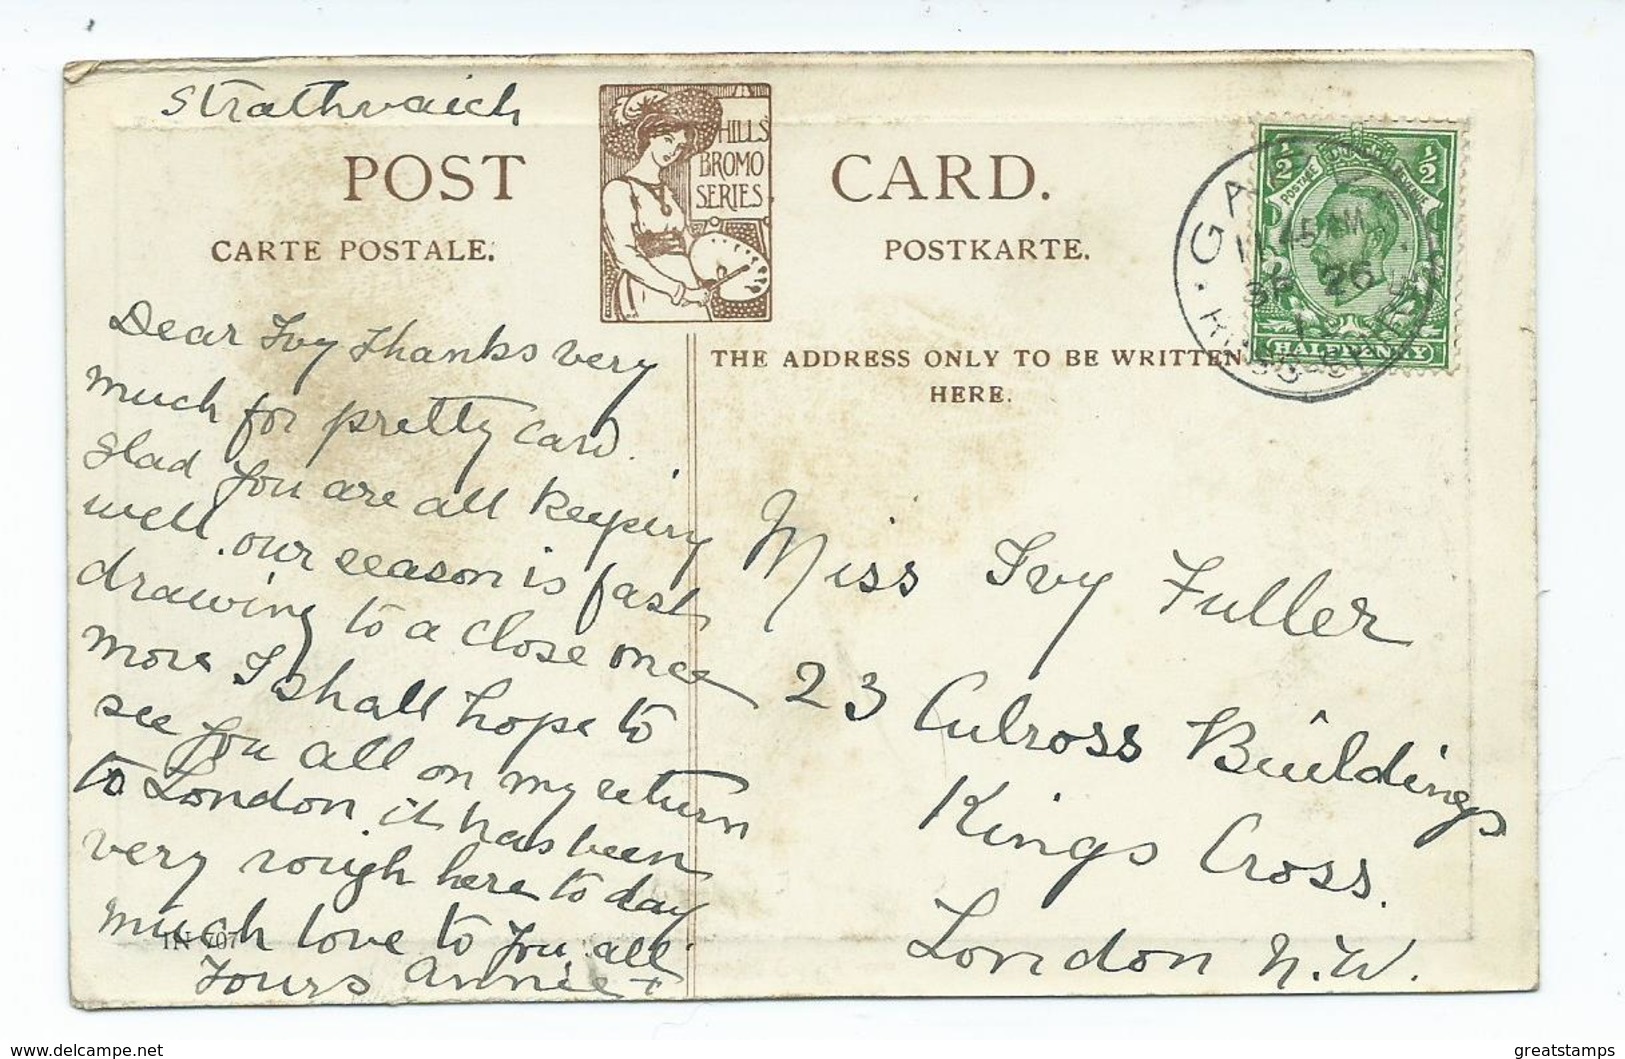 Strathvaich
POST CARD.
HILLS
BROMO
SERIES
CARTE POSTALE.
POSTKARTE.
THE ADDRESS ONLY TO BE WRITTEN
HERE.
Dear Ivy Thanks very
much for pretty card.
glad you are all keeping
well. our season is fast
drawing to a close once
more I shall hope to
see you all on my return
to London. it has been
very rough here to day
much love to you all
Yours Annie +
IN 707
Miss Ivy Fuller
23 Culross Buildings
Kings Cross.
London N.W.
½ ½
POSTAGE REVENUE
HALFPENNY
GA
11.45 AM
SP 26
delcampe.net
greatstamps